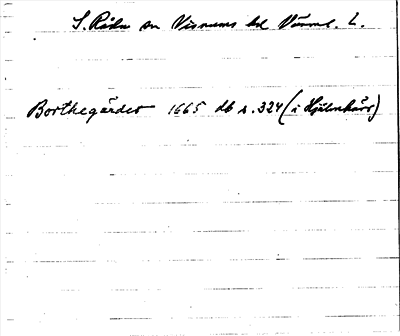 S. Råda sn Visnums hd Värml. L.
Borthegärdet 1665 db s. 324 (i Hjälmhärs)